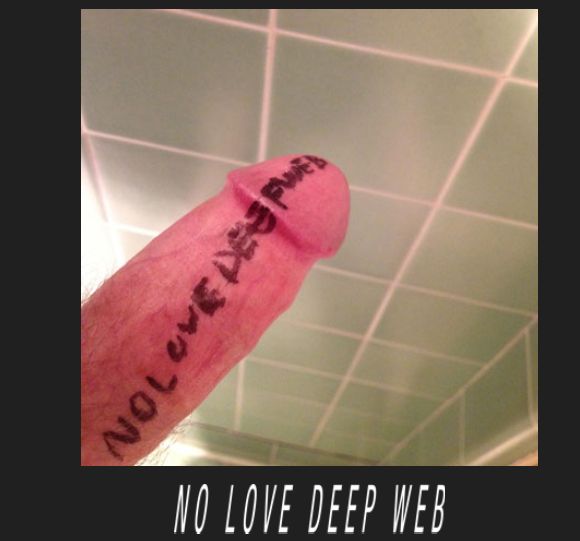 NO LOVE DEEP WEB
NO LOVE DEEP WEB